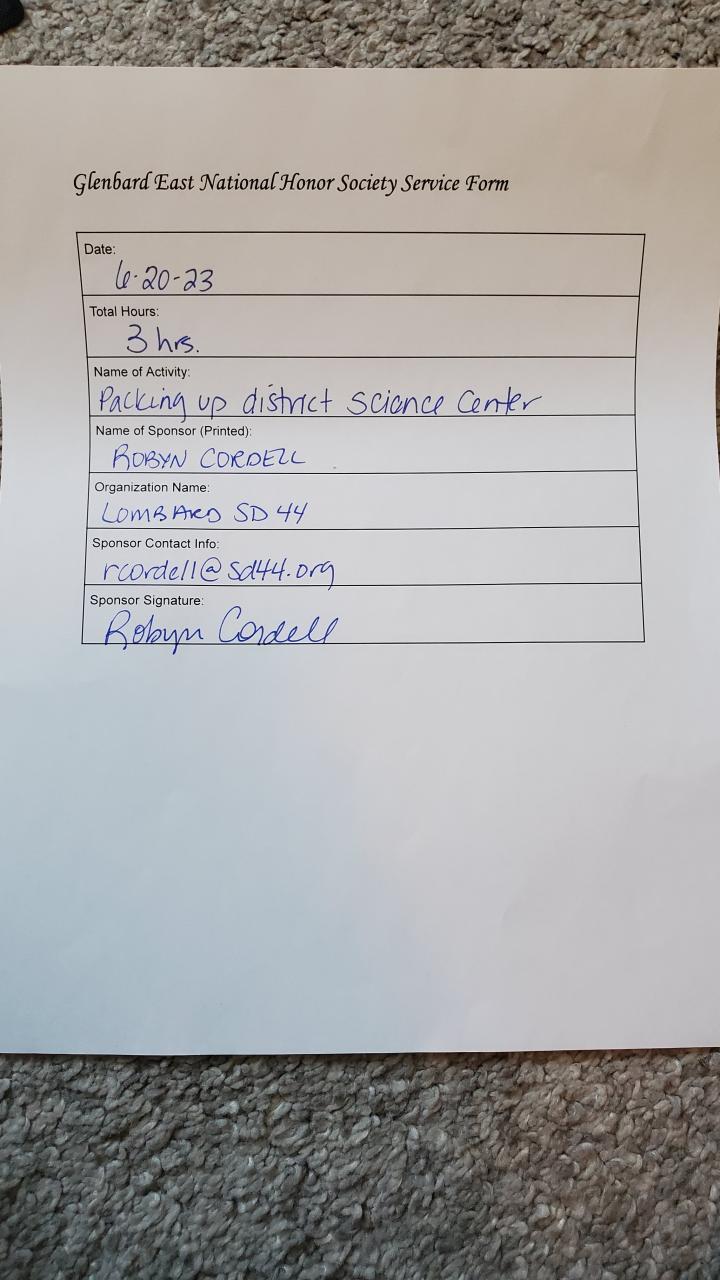 Glenbard East National Honor Society Service Form
Date:
6-20-23
Total Hours:
3 hrs.
Name of Activity:
Packing up district Science Center
Name of Sponsor (Printed):
ROBYN CORDELL
Organization Name:
LOMBARD SD 44
Sponsor Contact Info:
rcordell@sd44.org
Sponsor Signature:
Robyn Cordell